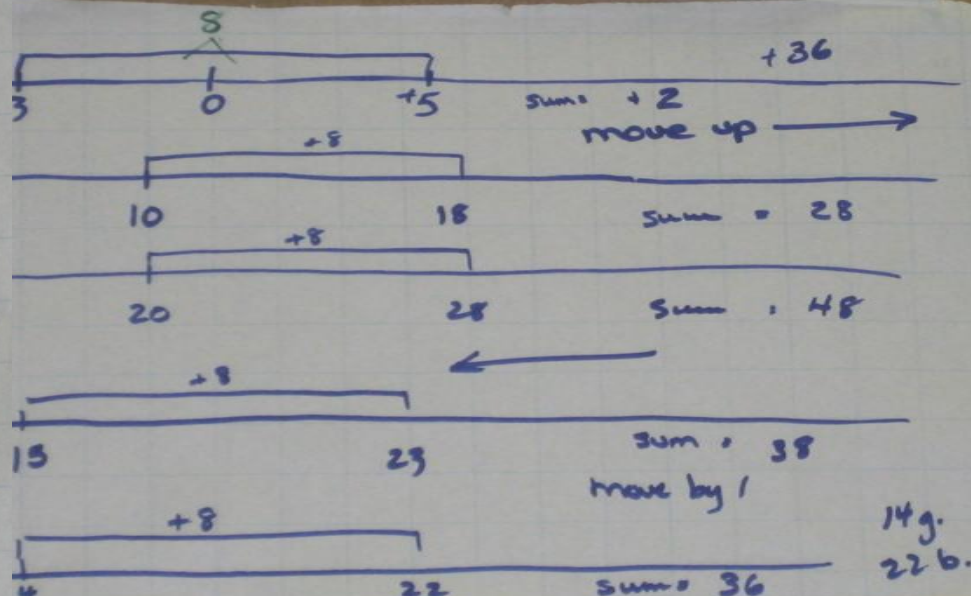 S
+36
3 0 +5 sum= +2
move up
+8
10 18 sum = 28
+8
20 28 sum = 48
+8
15 23 sum = 38
move by 1
+8 14g.
22 b.
4 22 sum= 36